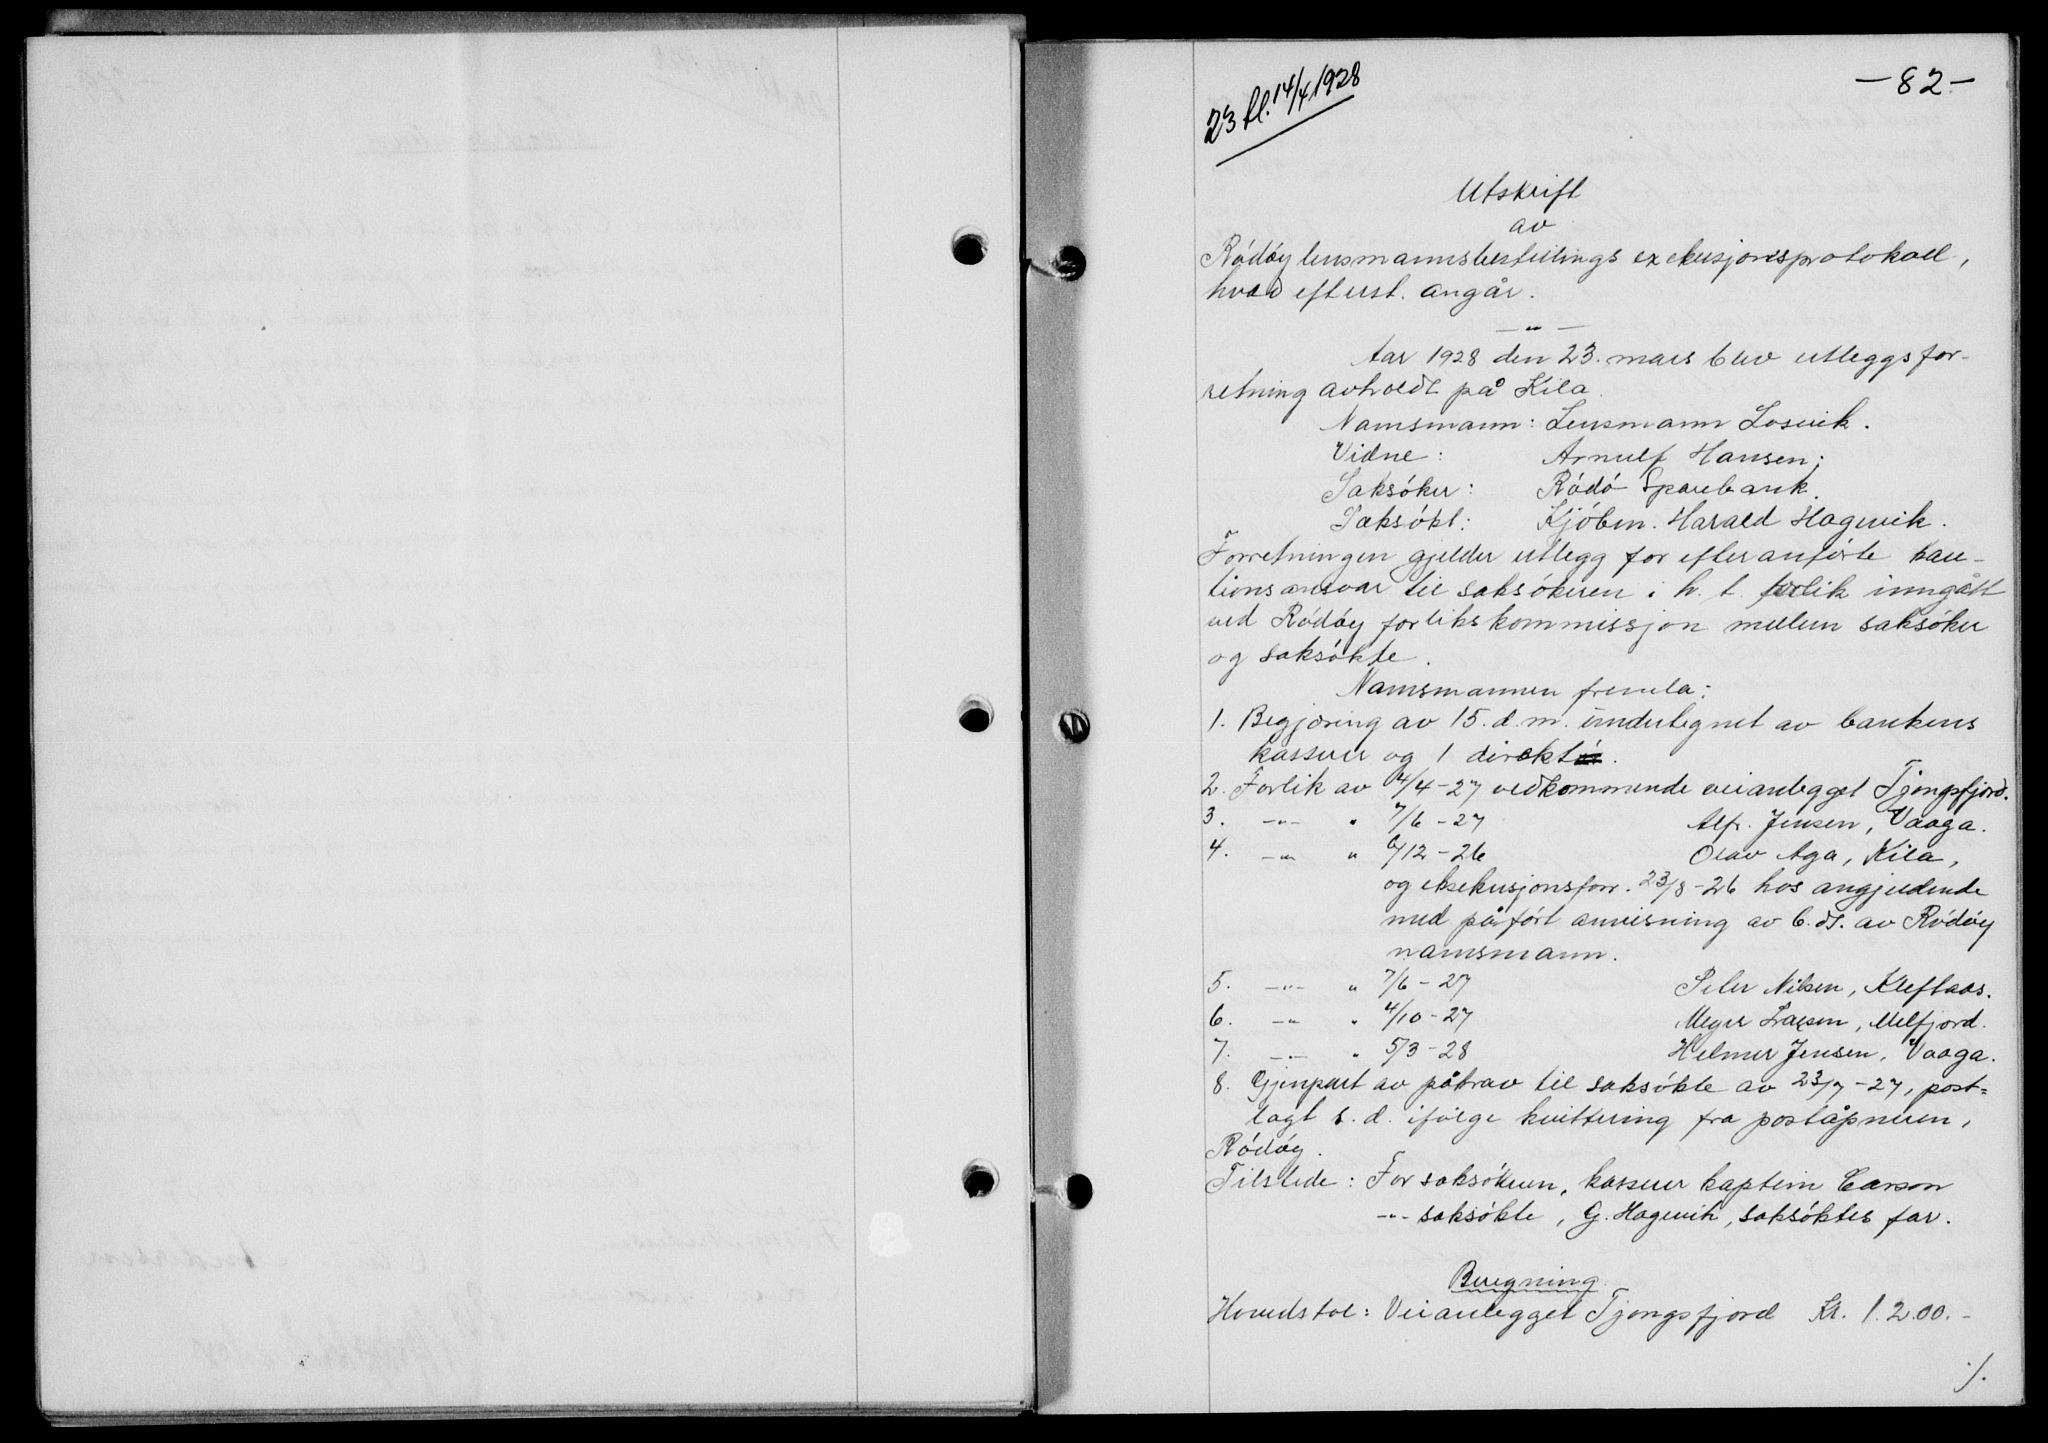 - 82 -
23 fl. 14/4 1928
Utskrift
av
Rödöy lensmannsbestillings exekusjonsprotokoll,
hvad efterst. angår.
— " —
Aar 1928 den 23. mars blev utleggsfor-
retning avholdt på Kila.
Namsmann: Lensmann Losvik.
Vidne: Arnulf Hansen;
Saksöker: Rödö Sparebank.
Saksökt: Kjöbm. Harald Hagevik.
Forretningen gjelder utlegg for efteranförte kau-
tionsansvar til saksökeren i h. t. forlik inngått
ved Rödöy forlikskommissjon mellem saksöker
og saksökte.
Namsmannen fremla:
1. Begjæring av 15. d. m. underlegnet av bankens
kasserer og 1 direktör.
2. Forlik av 4/4 - 27 vedkommende veianlegget Tjongsfjord.
3. -"- " 7/6 - 27 Alfr. Jensen, Vaaga.
4. -"- " 6/12 - 26 Olav Aga, Kila,
og eksekusjonsforr. 23/8 - 26 hos angjeldende
med påfört anvisning av 6. ds. av Rödöy
namsmann.
5. -"- " 7/6 - 27 Peter Nilsen, Kleftaas.
6. -"- " 4/10 - 27 Meyer Larsen, Melfjord.
7. -"- " 5/3 - 28 Helmer Jensen, Vaaga.
8. Gjenpart av påkrav til saksökte av 23/7 - 27, post=
lagt s. d. ifölge kvittering fra poståpneren,
Rödöy.
Tilstede: For saksökeren, kasserer kaptein Carson
-"- saksökte, G. Hagevik, saksöktes far.
Beregning.
Hovedstol: Veianlegget Tjongsfjord Kr. 1.200.-
./.